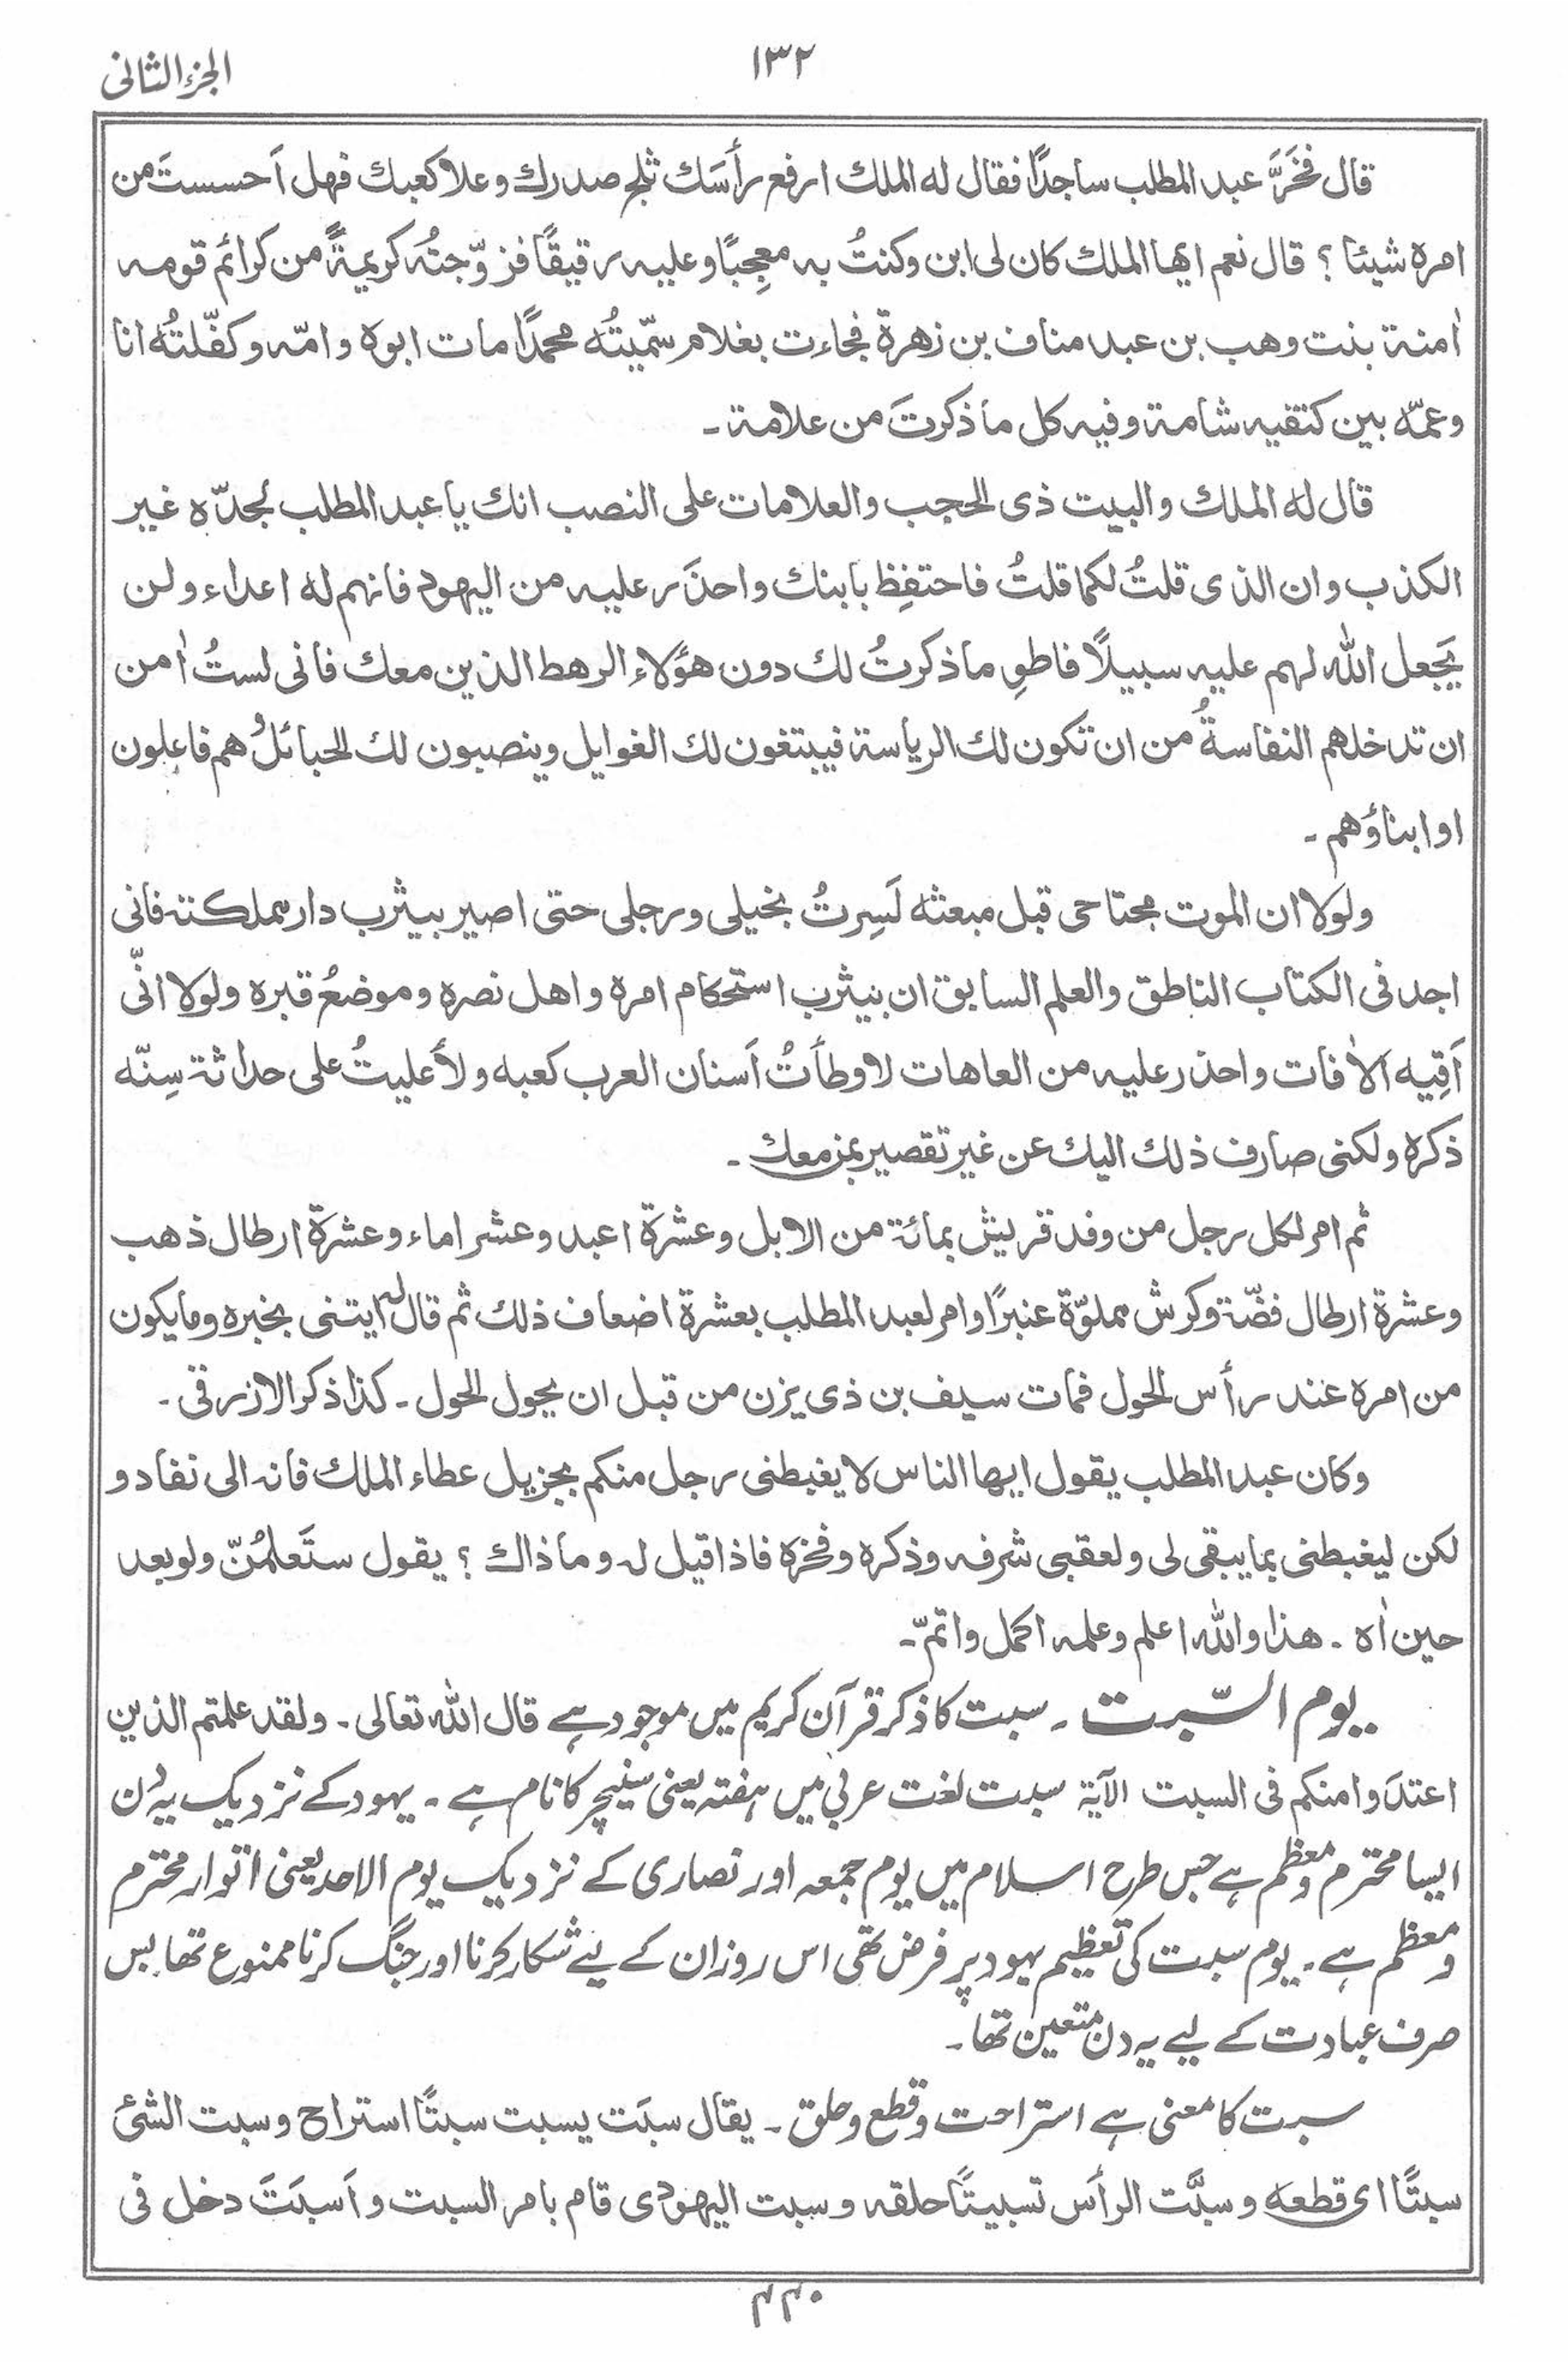 الجزء الثانی
۱۳۲
قال فَخَرَّ عبد المطلب ساجدًا فقال له الملك ارفع رأسَك ثلج صدرك وعلا كعبك فهل اَحسستَ من
امره شيئا ؟ قال نعم ايها الملك كان لى ابن وكنتُ به معجِبًا وعليه رقيقًا فزوّجتُه كريمةً من كرائم قومه
اٰمنة بنت وهب بن عبد مناف بن زهرة فجاءت بغلام سمّيتُه محمدًا مات ابوه وامّه وكفّلتُه انا
وعمّه بين كتفيه شامة وفيه كل ما ذكرتَ من علامة ۔
قال له الملك والبيت ذى الحجب والعلامات على النصب انك يا عبد المطلب لجدّه غير
الكذب وان الذى قلتُ لكما قلتُ فاحتفِظ بابنك واحذَر عليه من اليهود فانهم له اعداء ولن
يَجعل الله لهم عليه سبيلًا فاطوِ ما ذكرتُ لك دون هؤلاءِ الرهط الذين معك فانى لستُ اٰمن
ان تدخلهم النفاسةُ من ان تكون لك الرياسة فيبتغون لك الغوايل وينصبون لك الحبائلُ وهم فاعلون
او ابناؤهم ۔
ولولا ان الموت مجتاحى قبل مبعثه لَسِرتُ بخيلى ورجلى حتى اصير بيثرب دار مملكته فانى
اجد فى الكتاب الناطق والعلم السابق ان بيثرب استحكام امره واهل نصره وموضعُ قبره ولولا انّى
اَقِيه الاٰفات واحذر عليه من العاهات لاوطأتُ اَسنان العرب كعبه ولأعليتُ على حداثة سِنّه
ذكره ولكنى صارف ذلك اليك عن غير تقصير بمن معك ۔
ثم امر لكل رجل من وفد قريش بمائة من الابل وعشرة اعبد وعشر اماء وعشرة ارطال ذهب
وعشرة ارطال فضّة وكرش مملوّة عنبرًا وامر لعبد المطلب بعشرة اضعاف ذلك ثم قال له ايتنى بخبره وما يكون
من امره عند رأس الحول فمات سيف بن ذى يزن من قبل ان يحول الحول ۔ كذا ذكر الازرقى ۔
وكان عبد المطلب يقول ايها الناس لا يغبطنى رجل منكم بجزيل عطاء الملك فانه الى نفاد و
لكن ليغبطنى بما يبقى لى ولعقبى شرفه وذكره وفخره فاذا قيل له وما ذاك ؟ يقول ستَعلمُنّ ولو بعد
حين اٰه ۔ هذا والله اعلم وعلمه اكمل واتمّ ۔
یوم السّبت ۔ سبت کا ذکر قرآن کریم میں موجود ہے قال اللہ تعالی ۔ ولقد علمتم الذين
اعتدَوا منكم فى السبت الآیۃ سبت لغت عربی میں ہفتہ یعنی سنیچر کا نام ہے ۔ یہود کے نزدیک یہ دن
ایسا محترم و معظم ہے جس طرح اسلام میں یوم جمعہ اور نصاری کے نزدیک یوم الاحد یعنی اتوار محترم
و معظم ہے ۔ یوم سبت کی تعظیم یہود پر فرض تھی اس روز ان کے لیے شکار کرنا اور جنگ کرنا ممنوع تھا بس
صرف عبادت کے لیے یہ دن متعین تھا ۔
سبت کا معنی ہے استراحت و قطع و حلق ۔ يقال سبَت يسبت سبتًا استراح وسبت الشئ
سبتًا اى قطعه وسبَّت الرأسَ تسبيتًا حلقه وسبت اليهودى قام بامر السبت واَسبَتَ دخل فى
۴۴۰